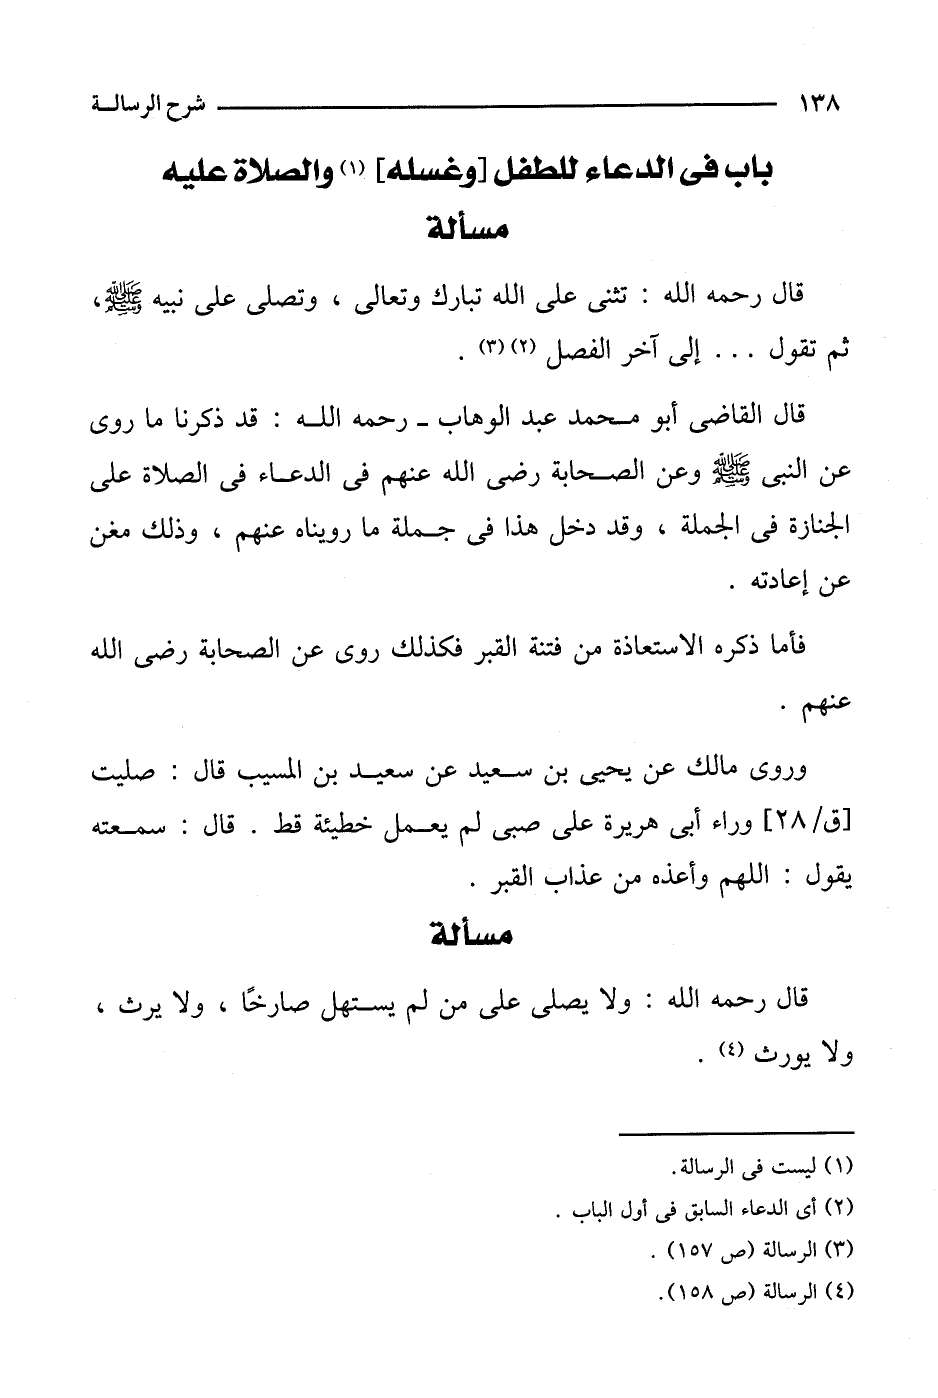 ١٣٨ شرح الرسالة
باب فى الدعاء للطفل [وغسله] (١) والصلاة عليه
مسألة
قال رحمه الله : تثنى على الله تبارك وتعالى ، وتصلى على نبيه ﷺ ،
ثم تقول ... إلى آخر الفصل (٢) (٣) .
قال القاضى أبو محمد عبد الوهاب ـ رحمه الله : قد ذكرنا ما روى
عن النبى ﷺ وعن الصحابة رضى الله عنهم فى الدعاء فى الصلاة على
الجنازة فى الجملة ، وقد دخل هذا فى جملة ما رويناه عنهم ، وذلك مغن
عن إعادته .
فأما ذكره الاستعاذة من فتنة القبر فكذلك روى عن الصحابة رضى الله
عنهم .
وروى مالك عن يحيى بن سعيد عن سعيد بن المسيب قال : صليت
[ق/٢٨] وراء أبى هريرة على صبى لم يعمل خطيئة قط . قال : سمعته
يقول : اللهم وأعذه من عذاب القبر .
مسألة
قال رحمه الله : ولا يصلى على من لم يستهل صارخًا ، ولا يرث ،
ولا يورث (٤) .
(١) ليست فى الرسالة.
(٢) أى الدعاء السابق فى أول الباب .
(٣) الرسالة (ص ١٥٧) .
(٤) الرسالة (ص ١٥٨).